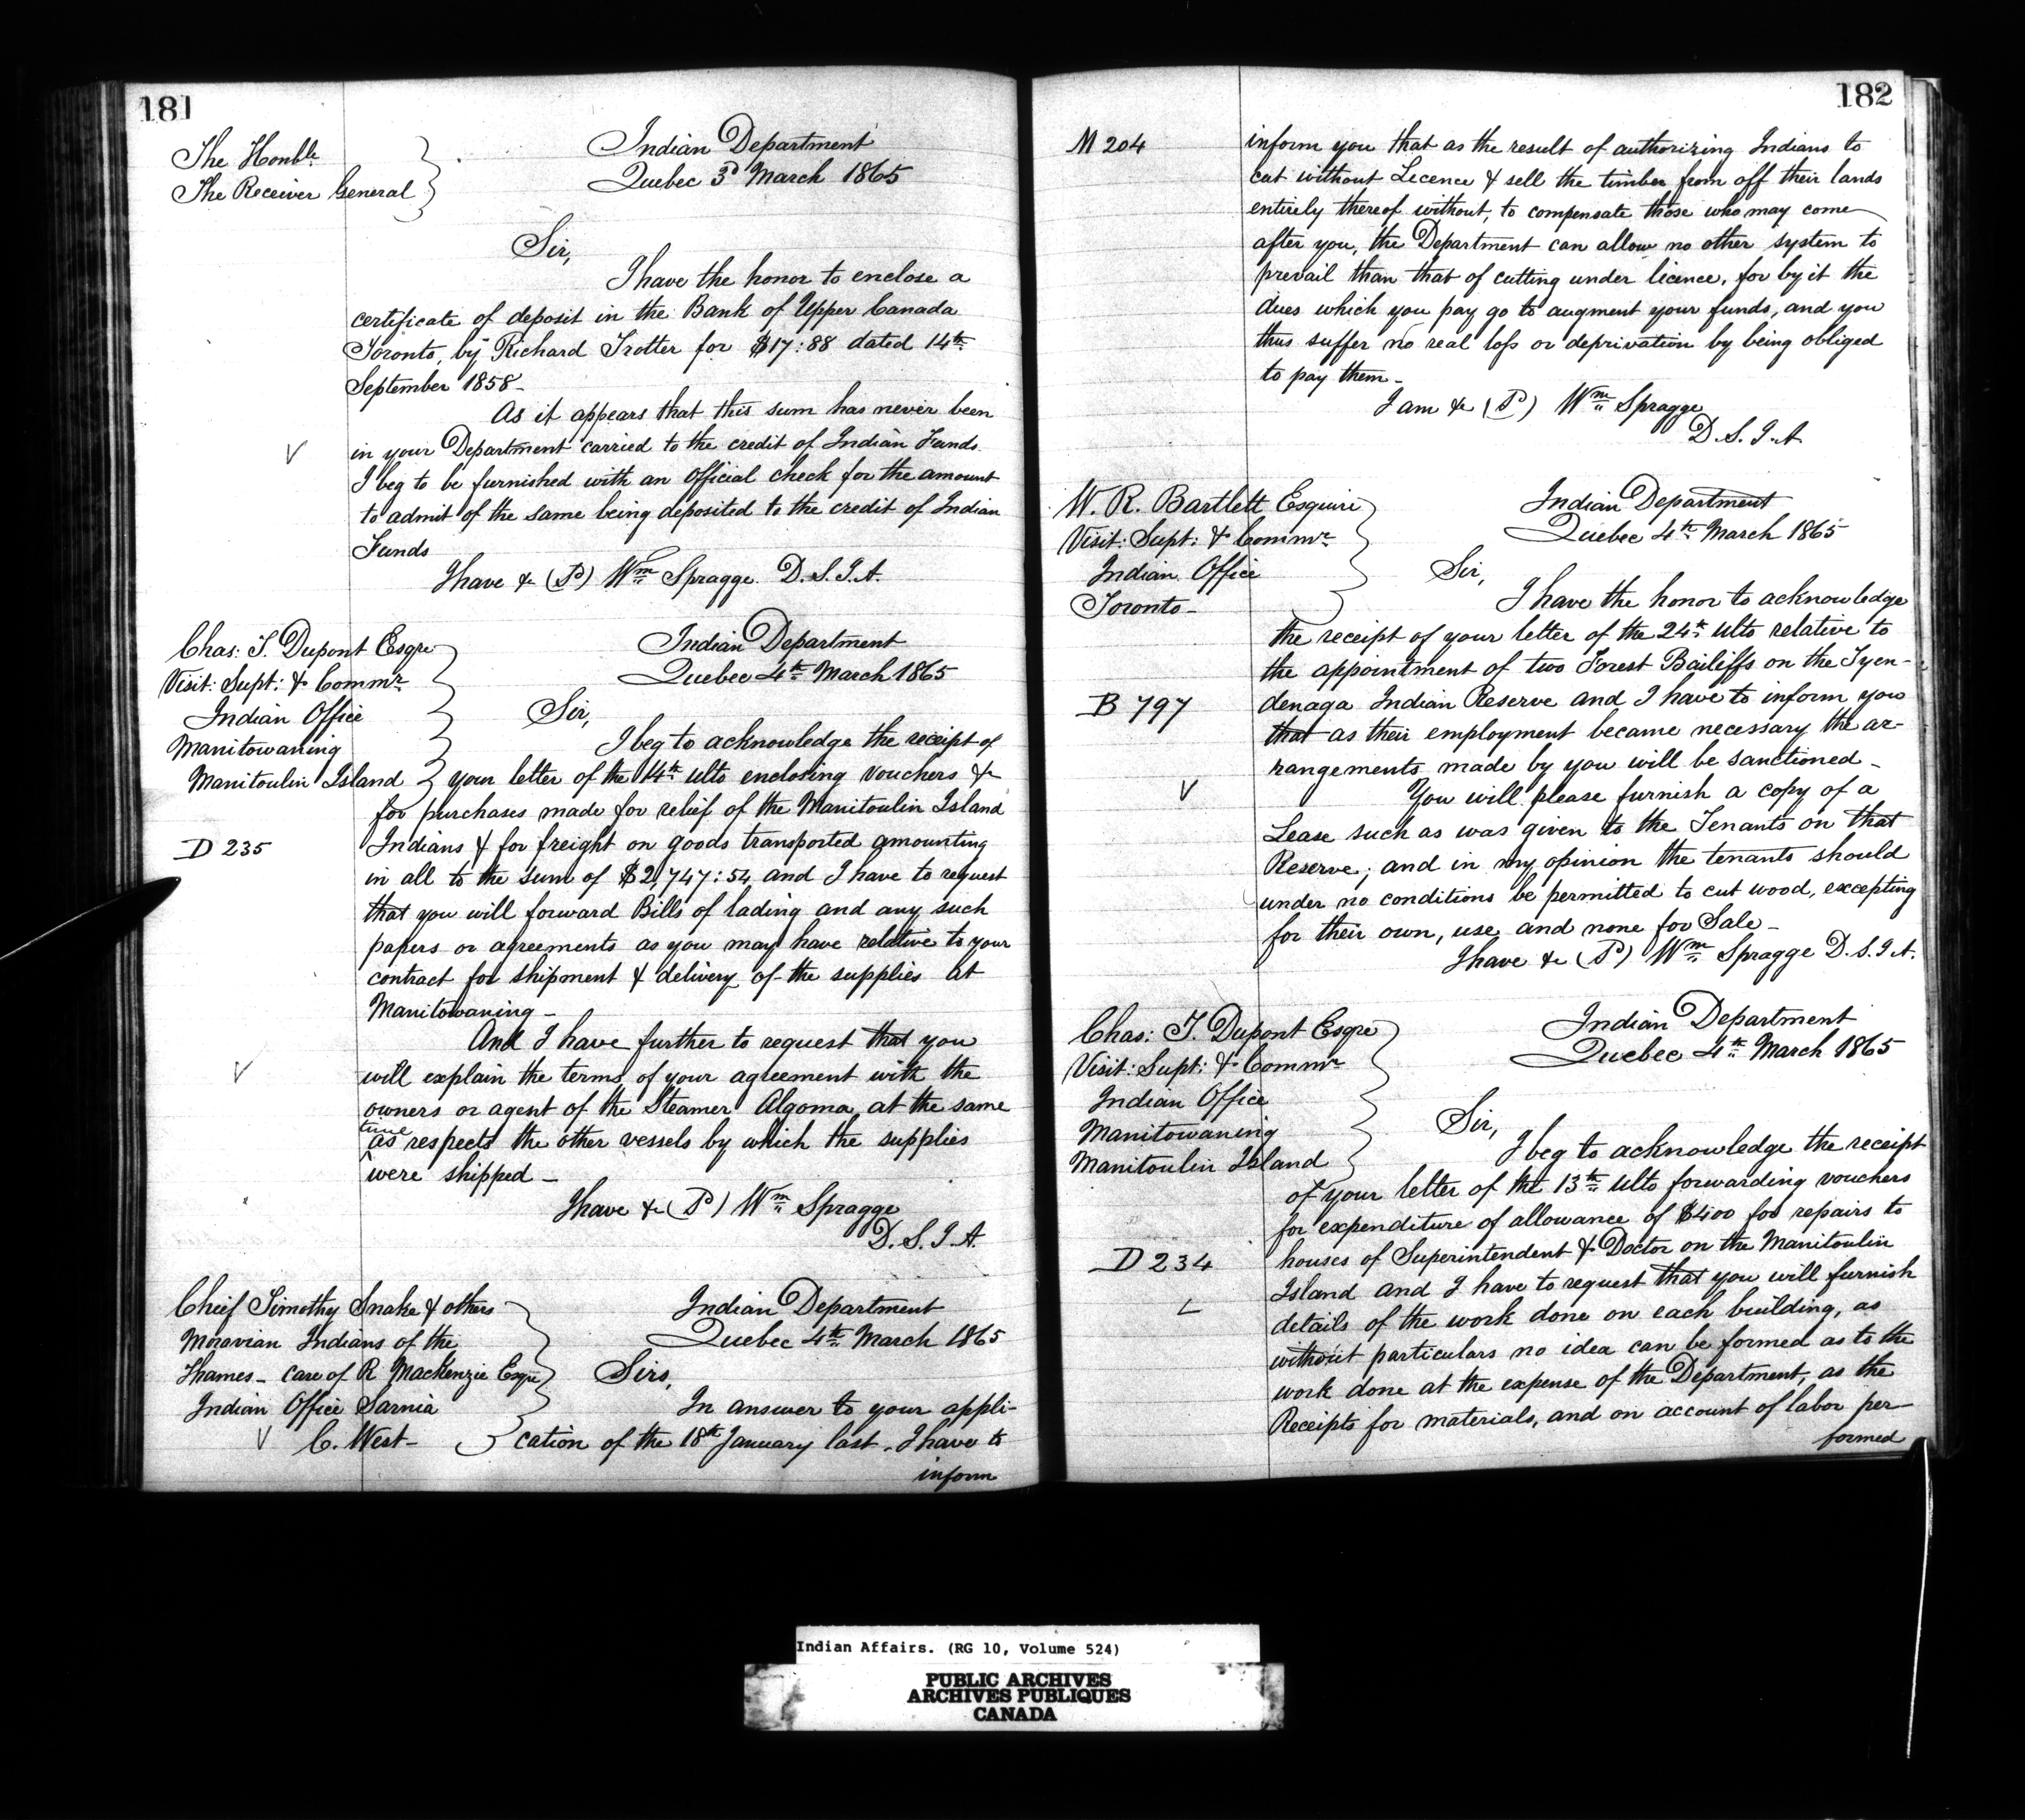 181
The Honble
The Receiver General
Indian Department
Quebec 3d March 1865
Sir,
I have the honor to enclose a
certificate of deposit in the Bank of Upper Canada
Toronto, by Richard Trotter for $17:88 dated 14th
September 1858-
As it appears that this sum has never been
in your Department carried to the credit of Indian Funds.
I beg to be furnished with an Official check for the amount
to admit of the same being deposited to the credit of Indian
Funds
I have &c (S) Wm Spragge. D.S.I.A.
Chas: T. Dupont Esqre
Visit: Supt: & Commr.
Indian Office
Manitowaning
Manitoulin Island
Indian Department
Quebec 4th March 1865
Sir,
I beg to acknowledge the receipt of
your letter of the 14th ulto enclosing vouchers &c
for purchases made for relief of the Manitoulin Island
D 235
Indians & for freight on goods transported amounting
in all to the sum of $2,747:54 and I have to request
that you will forward Bills of lading and any such
papers or agreements as you may have relative to your
contract for shipment & delivery of the supplies at
Manitowaning-
And I have further to request that you
will explain the terms of your agreement with the
owners or agent of the Steamer Algoma, at the same
time
as respects the other vessels by which the supplies
were shipped-
I have &c (S) Wm Spragge
D.S.I.A.
Chief Timothy Snake & others
Moravian Indians of the
Thames - care of R Mackenzie Esqre
Indian Office Sarnia
C. West-
Indian Department
Quebec 4th March 1865
Sirs,
In answer to your appli-
cation of the 18th January last, I have to
inform
182
M 204
inform you that as the result of authorizing Indians to
cut without Licence & sell the timber from off their lands
entirely thereof without, to compensate those who may come
after you, the Department can allow no other system to
prevail than that of cutting under licence, for by it the
dues which you pay go to augment your funds, and you
thus suffer no real loss or deprivation by being obliged
to pay them-
I am &c (S) Wm Spragge
D.S.I.A
W. R. Bartlett Esquire
Visit: Supt: & Commr.
Indian Office
Toronto-
Indian Department
Quebec 4th March 1865
Sir,
I have the honor to acknowledge
the receipt of your letter of the 24th ulto relative to
the appointment of two Forest Bailiffs on the Tyen-
B 797
denaga Indian Reserve and I have to inform you
that as their employment became necessary the ar-
rangements made by you will be sanctioned-
You will please furnish a copy of a
Lease such as was given to the Tenants on that
Reserve; and in my opinion the tenants should
under no conditions be permitted to cut wood, excepting
for their own, use and none for Sale-
I have &c (S) Wm Spragge D.S.I.A.
Chas: T. Dupont Esqre
Visit: Supt: & Commr
Indian Office
Manitowaning
Manitoulin Island
Indian Department
Quebec 4th March 1865
Sir,
I beg to acknowledge the receipt
of your letter of the 13th ulto forwarding vouchers
for expenditure of allowance of $400 for repairs to
D 234
houses of Superintendent & Doctor on the Manitoulin
Island and I have to request that you will furnish
details of the work done on each building, as
without particulars no idea can be formed as to the
work done at the expense of the Department, as the
Receipts for materials, and on account of labor per-
formed
Indian Affairs. (RG 10, Volume 524)
PUBLIC ARCHIVES
ARCHIVES PUBLIQUES
CANADA